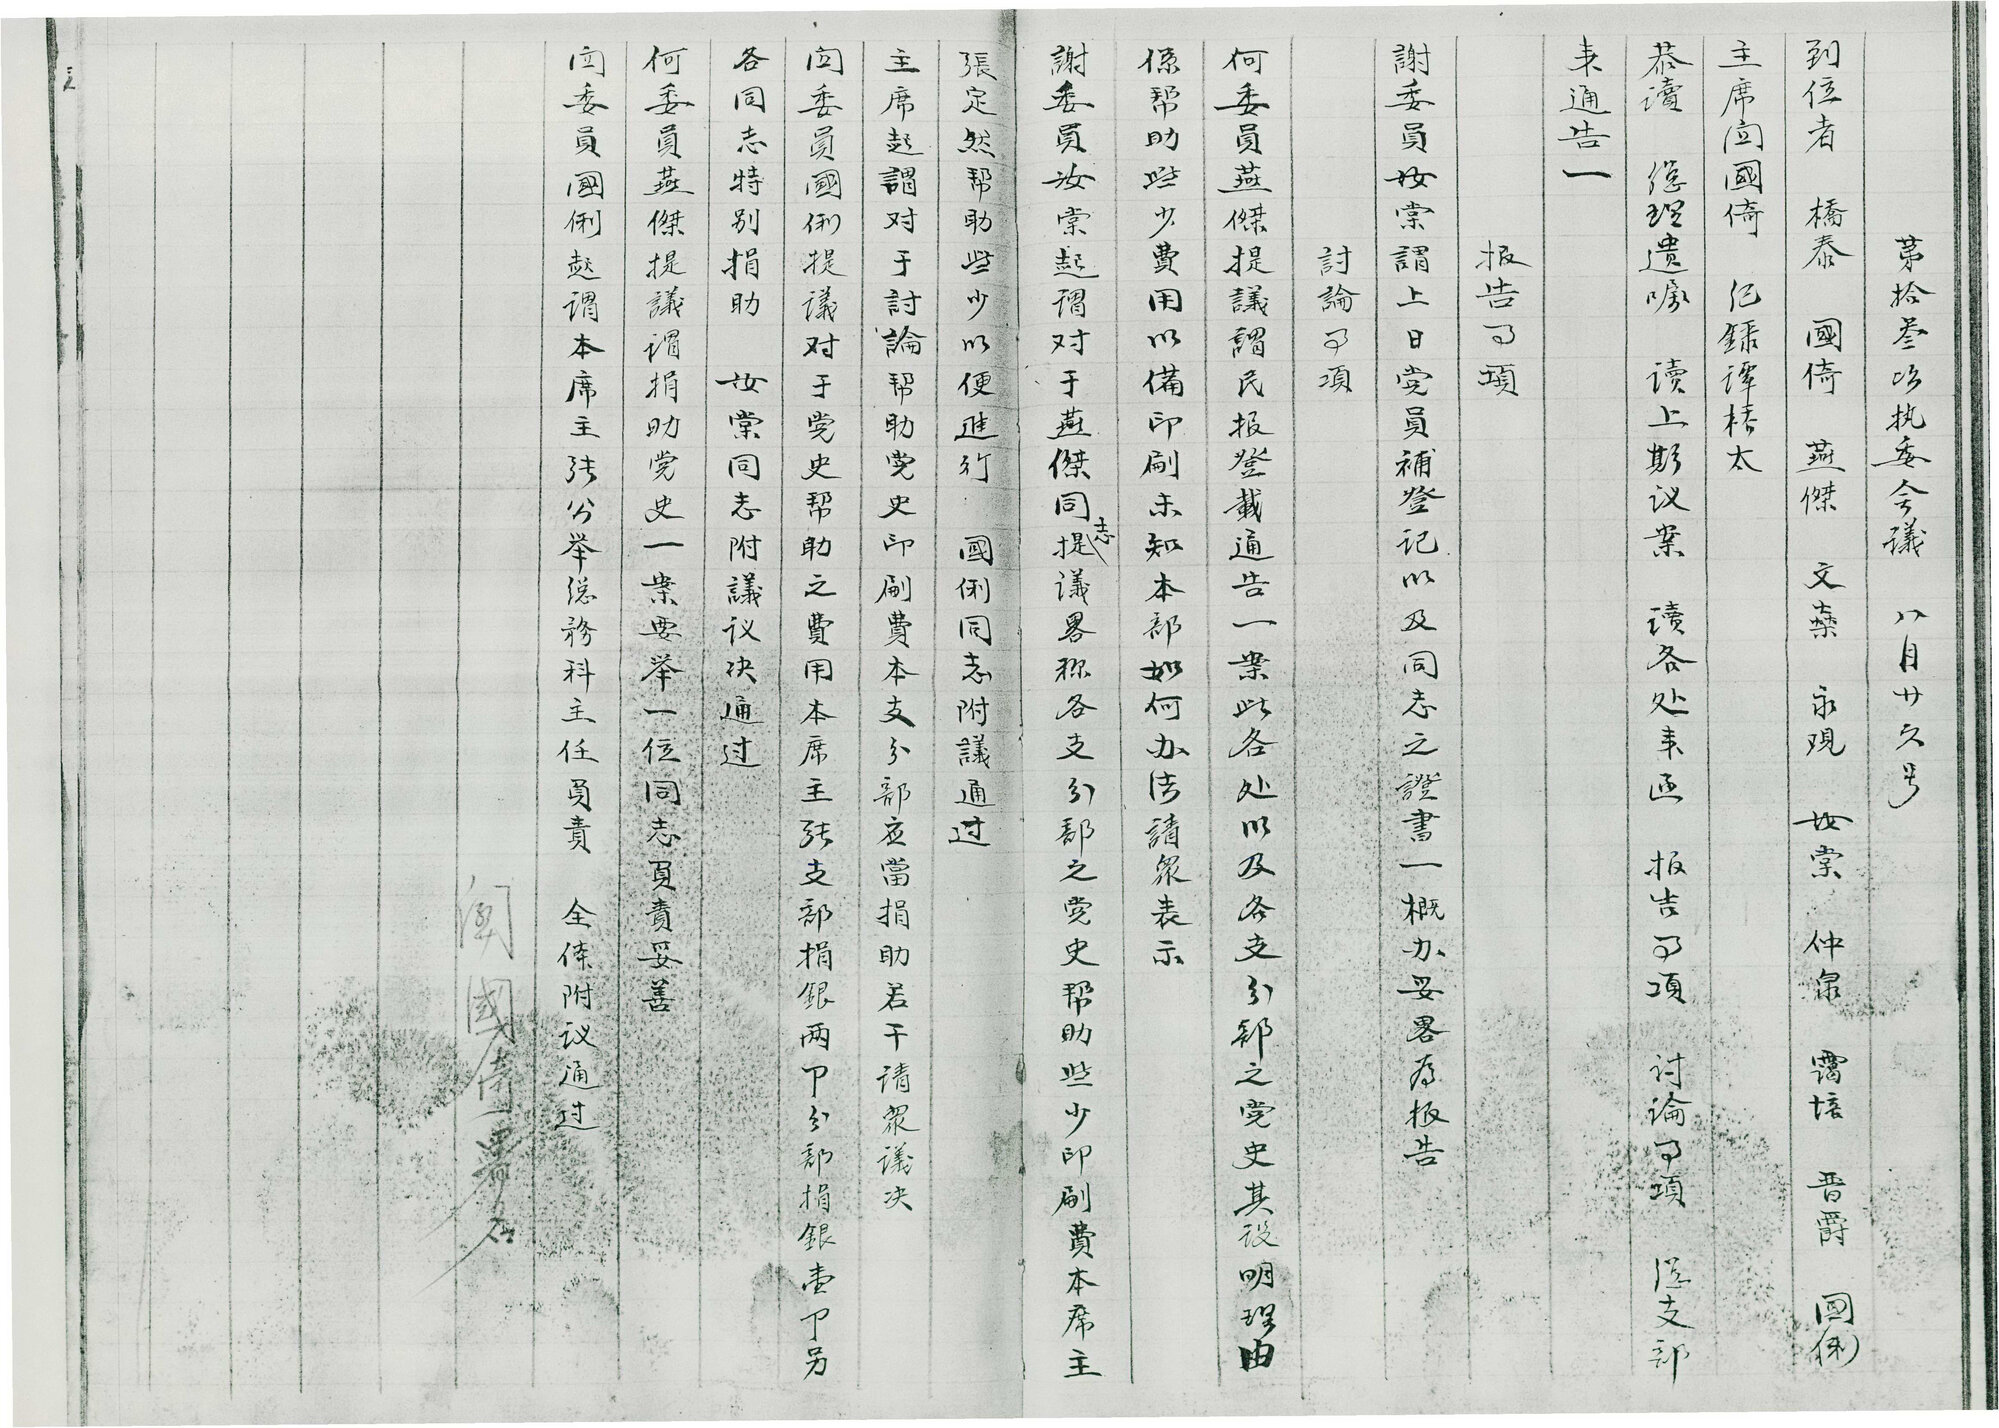 第拾叁次执委会议 八月廿六号
到位者 橋泰 國倚 燕傑 文燊 永現 女棠 仲泉 靄培 晋爵 國俐
主席闾國倚 纪録譚椿太
恭讀 總理遺嘱 读上期议案 读各处耒函 报告事項 讨論事項 總支部
耒通告一
报告事項
謝委員女棠謂上日党員補登记以及同志之證書一概办妥畧为报告
討論事項
何委員燕傑提議謂民报登載通告一案此各处以及各支分部之党史其设明理由
係帮助些少費用以備印刷未知本部如何办法請眾表示
謝委員汝棠起谓对于燕傑同志提议畧称各支分部之党史帮助些少印刷費本席主
張定然帮助些少以便進行 國俐同志附議通过
主席起謂对于討論帮助党史印刷費本支分部应當捐助若干请眾议决
闾委員國俐提議对于党史帮助之費用本席主张支部捐銀两元分部捐銀壹元另
各同志特别捐助 女棠同志附議议决通过
何委員燕傑提議谓捐助党史一案要举一位同志負責妥善
闾委員國俐起谓本席主张公举總務科主任負責 全体附议通过
闾國倚